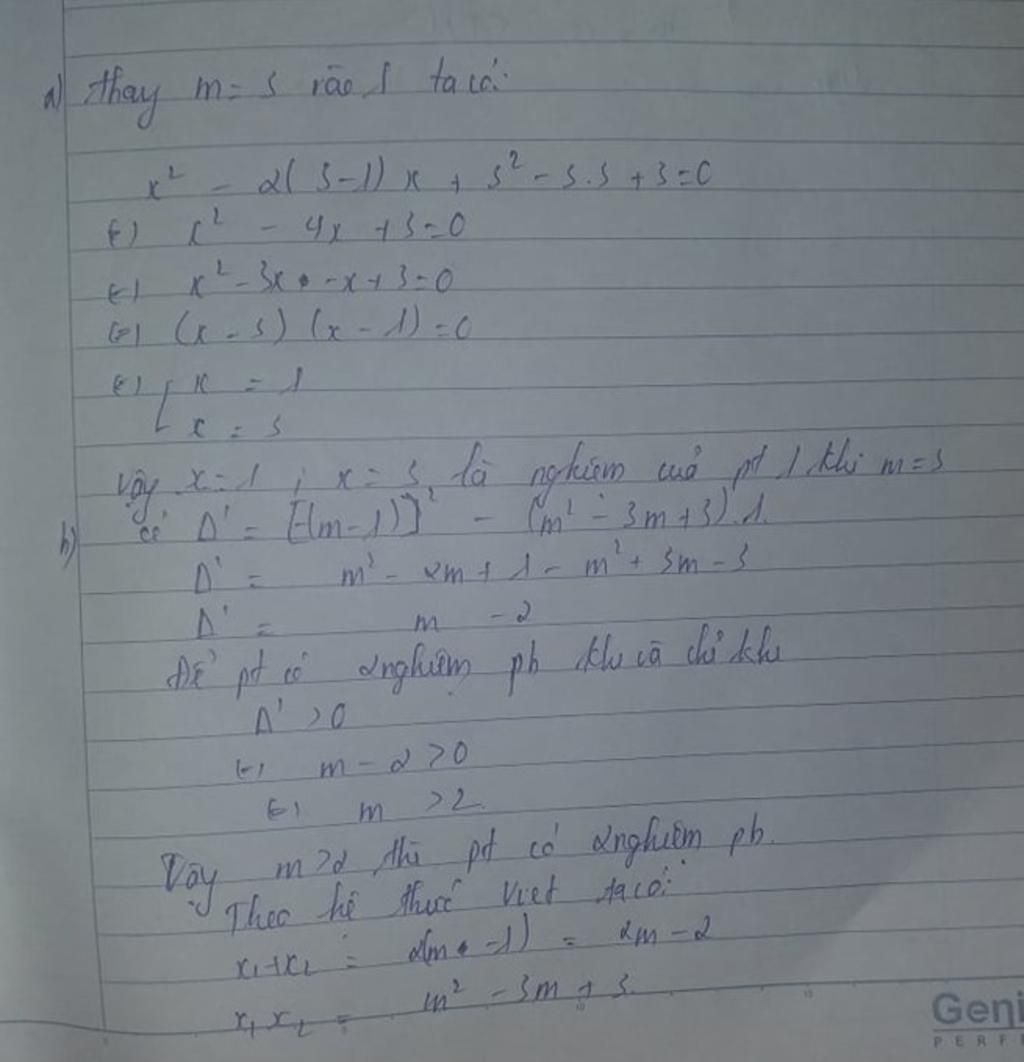 a) thay m = 3 vào 1 ta có:
x² - 2(3-1)x + 3² - 3.3 + 3 = 0
(=) x² - 4x + 3 = 0
(=) x² - 3x - x + 3 = 0
(=) (x - 3)(x - 1) = 0
(=) [ x = 1
x = 3
Vậy x = 1 ; x = 3 là nghiệm của pt 1 khi m = 3
b) có Δ' = [-(m-1)]² - (m² - 3m + 3).1
Δ' = m² - 2m + 1 - m² + 3m - 3
Δ' = m - 2
Để pt có 2 nghiệm pb khi và chỉ khi
Δ' > 0
(=) m - 2 > 0
(=) m > 2
Vậy m > 2 thì pt có 2 nghiệm pb.
Theo hệ thức Viet ta có:
x₁+x₂ = 2(m - 1) = 2m - 2
x₁x₂ = m² - 3m + 3.
Geni
PERF